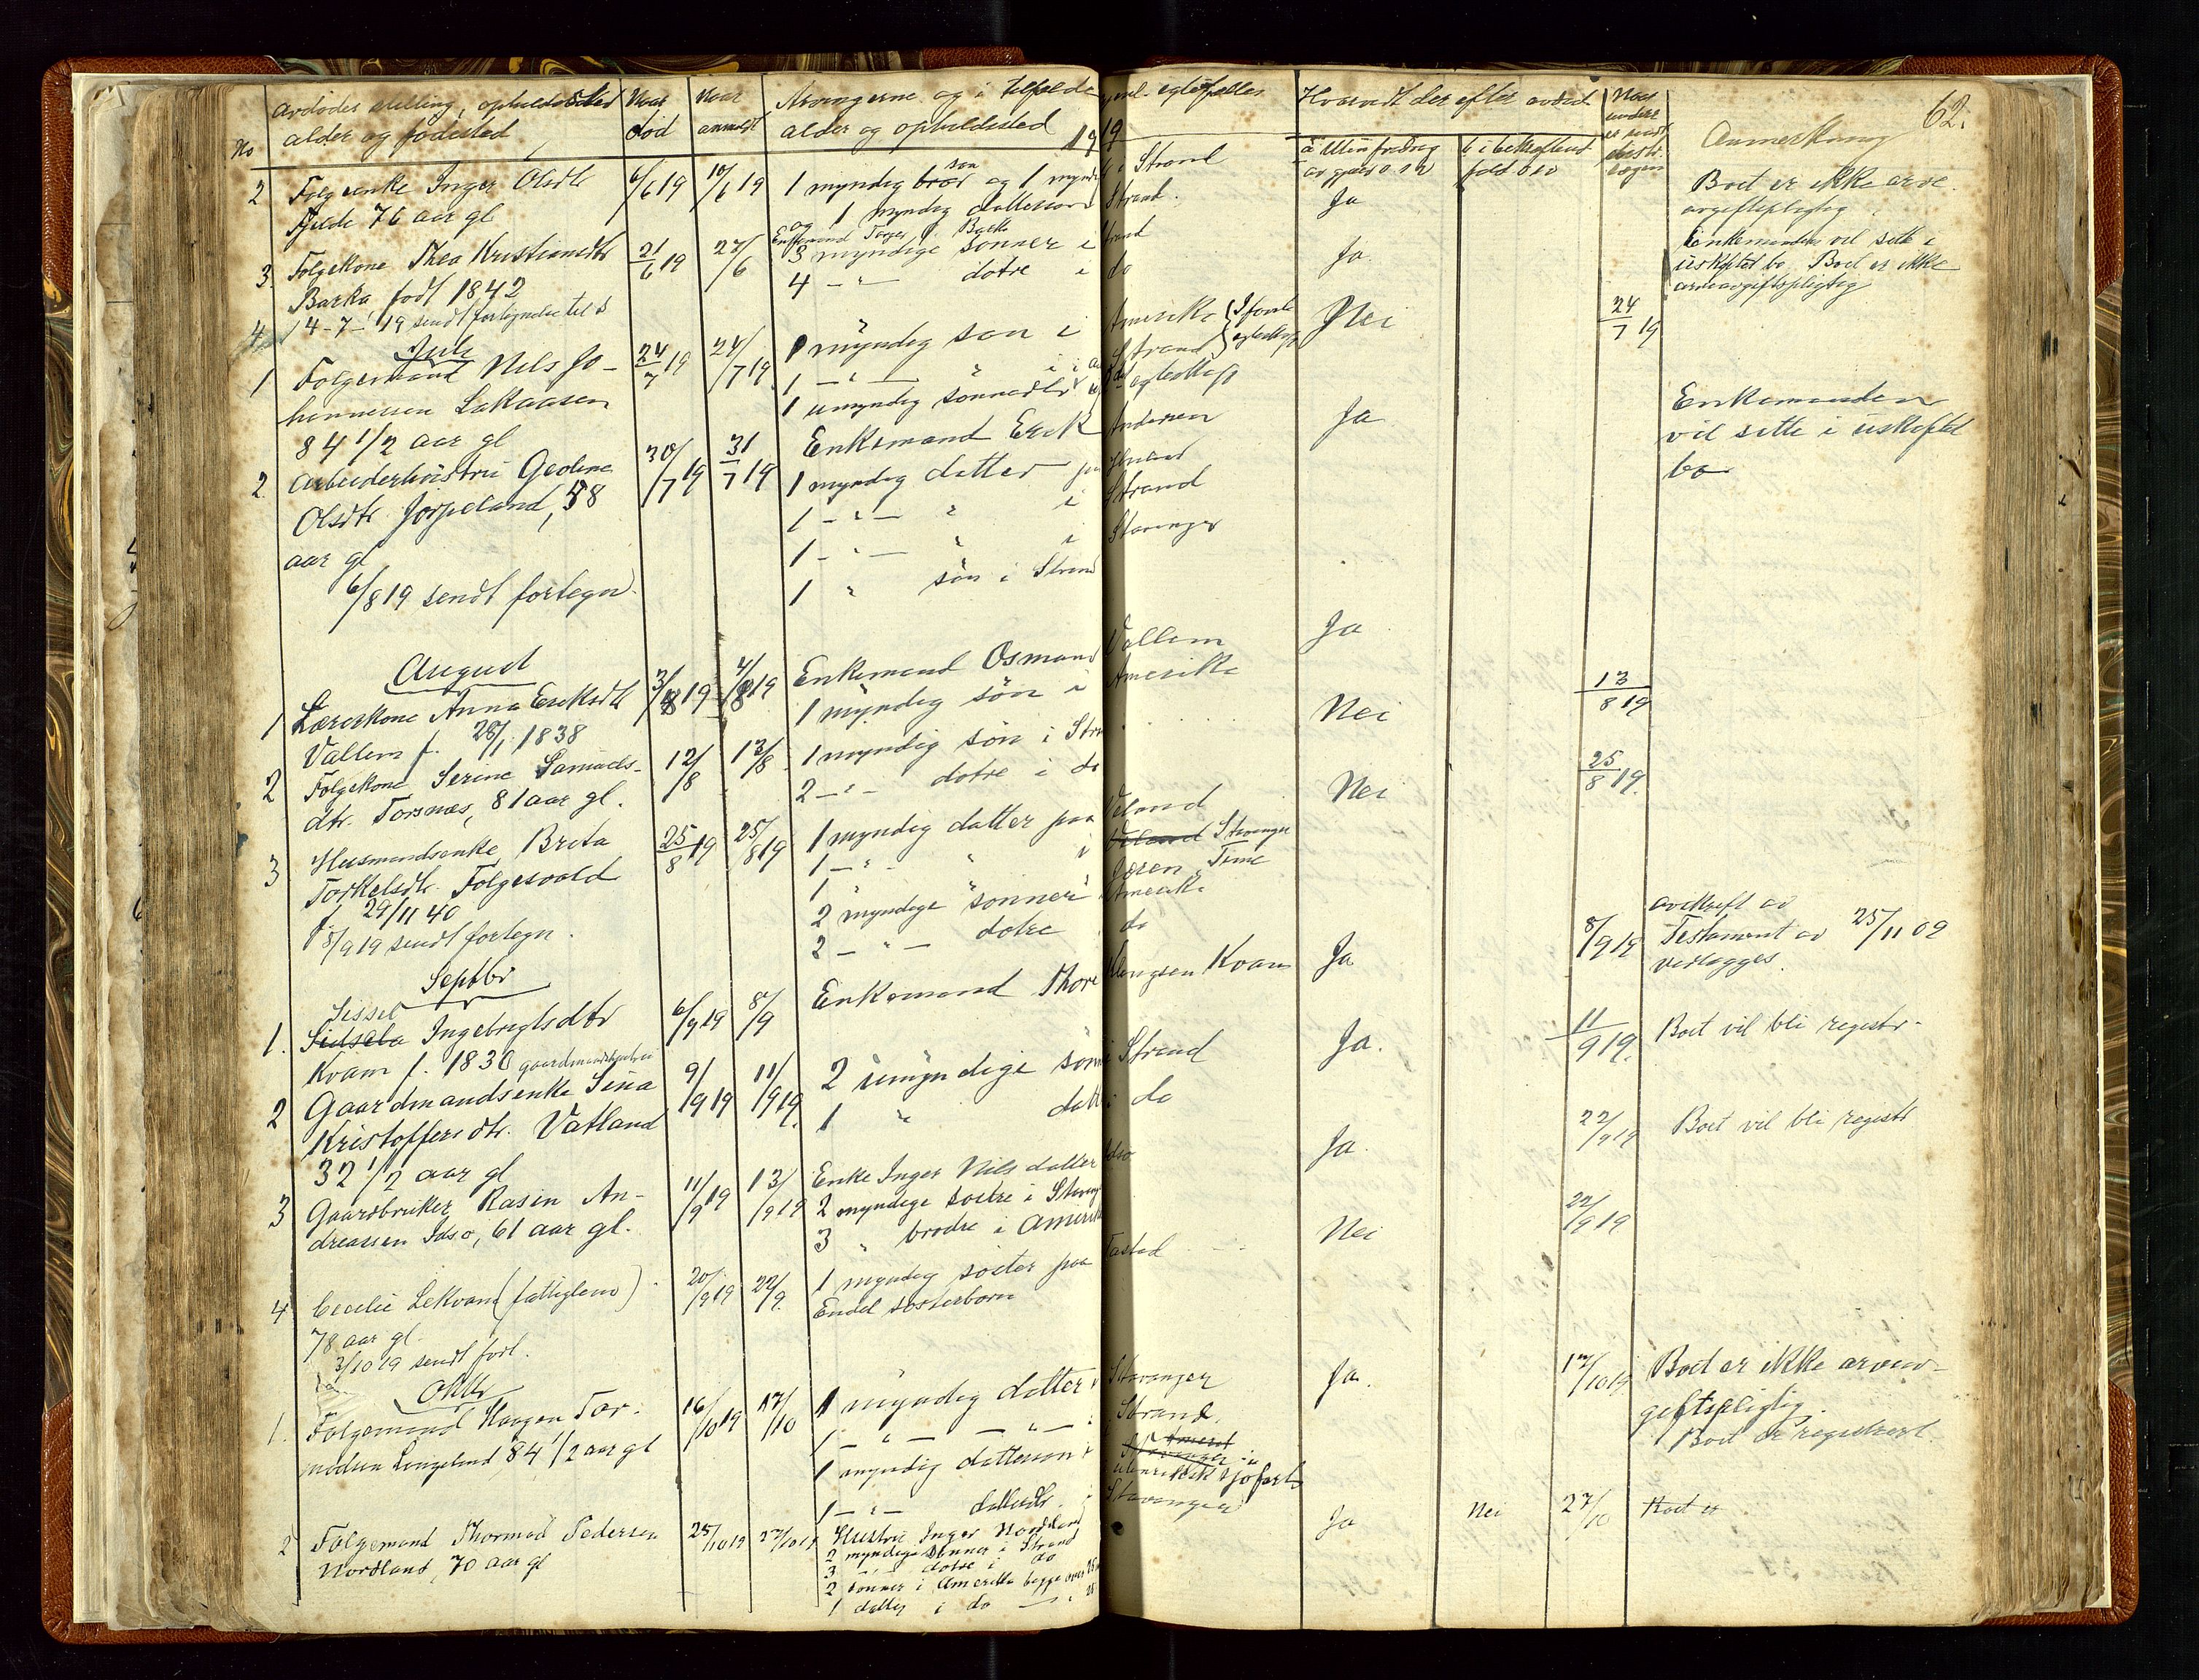 62.
No
Avdødes stilling, opholdssted
alder og fødested
Naar
død
Naar
anmeldt
Arvingerne og i tilfælde gjenl. egtefælles
alder og opholdssted 1919
Hvorvidt der efter avdød
Anmerkning
2 Folgeenke Inger Olsdtr 6/6 19 10/6 19 1 myndig bror søn og 1 myndig i Strand
Fjelde 76 aar gl og 1 myndig dattersøn i Strand. Ja
Boet er ikke arve
avgiftspligtig
3. Folgekone Thea Kristiansdtr 21/6 19 27/6
Enkemand Barka
3 myndige sønner i Strand Ja
Barka født 1842 4 - " - døtre i do
Enkemanden vil sitte i
uskiftet bo. Boet er ikke
arveavgiftspligtig
4 14-7-19 sendt fortegnelse
Juli
1 Folgemand Nils Jo- 24/7 19 24/7 19 1 myndig søn i Amerika Nei 24/7 19
hannessen Lekvaasen 1 - " - " i Strand
84 1/2 aar gl 1 umyndig sønnedtr
2 Arbeiderhustru Geoline 30/7 19 31/7 19 Enkemand Erik Andersen Ja
Olsdtr Jørpeland, 58 1 myndig datter
aar gl 1 - " - " i Strand
1 - " - " i Stavanger
6/8 19 sendt fortegn. 1 " søn i Strand
Enkemanden
vil sitte i uskiftet
bo
August
1 Lærerkone Anna Eriksdtr 3/8 19 4/8 19 Enkemand Osmund Vallem Ja
Vallem f. 28/1 1838 1 myndig søn i Amerika
2 Folgekone Serine Samuels- 12/8 13/8 1 myndig søn i Strand Nei 13/8 19
dtr. Torsnæs, 81 aar gl. 2 - " - døtre i do
3 Husmandsenke Breta 25/8 19 25/8 19 1 myndig datter paa Nei 25/8 19.
Torkelsdtr. Folgesvold 1 - " - " i Stavanger
f. 29/11 40 1 " " Jæren Time
8/9 19 sendt fortegn. 2 myndige sønner i Amerika
2 - " - døtre do
Septbr
Sissel
1. Sidsela Ingebrigtsdtr 6/9 19 8/9 Enkemand Thore Kvam Ja 8/9 19
Kvam f. 1830
avskrift av
Testament av 25/11 02
vedlægges.
2 Gaardmandsenke Sina 9/9 19 11/9 19. 2 umyndige sønner i Strand Ja. 11/9 19. Boet vil bli registr.
Kristoffersdtr. Vatland 1 " datter i do
32 1/2 aar gl
3 Gaardbruker Rasm An- 11/9 19 13/9 19 Enke Inger Nilsdatter Idsø Ja. 22/9 19 Boet vil bli registr
dreassen Idsø, 61 aar gl. 2 myndige søstre i Stavanger
3 " brødre i Amerika
4 Cecilie Lekvam (fattiglem) 20/9 19 22/9. 1 myndig søster paa Tastad Nei 22/9 19
78 aar gl. Endel søsterbørn
3/10 19 sendt fort.
Oktbr
1. Folgemand Haagen Tor- 16/10 19 17/10 1 myndig datter i Stavanger Ja. 17/10 19
modsen Longeland 84 1/2 aar gl 1 - " - - " - i Strand
1 myndig dattersøn i utenriksk sjøfart
1 - " - datterdtr. i Stavanger
Boet er ikke arveav-
giftspligtig.
Boet er registrert
2 Folgemand Thormod Pedersen 25/10 19 27/10 19 Hustru Inger Nordland Ja Nei 27/10 Boet er
Nordland, 70 aar gl 2 myndige sønner i Strand
3 - " - døtre i do
2 sønner i Amerika begge over
1 datter i do